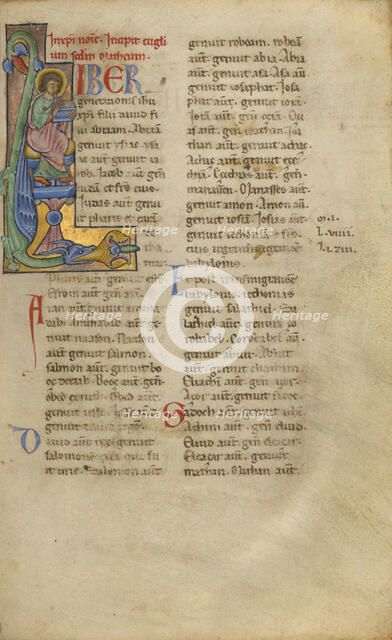 In xpi noīe. Incipit euglī
um scdm matheum.
LIBER
generationis ihu
xpi filii dauid fi
lii abraam. Abraā
genuit ysac. ysa
ac aut genuit ia
cob. Iacob aut gen
iudā et fr̄s eius.
Iudas aut genuit
phares et zaram
Phares aut genuit esrom
Esrom aut gen arā
A
ran aut genuit amina
dab. Aminadab aut
genuit naason. Naason
aut genuit salmon.
Salmon aut genuit bo
oz Booz aut gen
obed Obed aut
genuit
genuit dauid regē.
D
auid aut rex genuit
salomonē ex ea que fu
it urie. Salomon aut
genuit roboam. roboā
aut genuit abia. Abia
aut genuit asa. Asa aut
genuit iosaphat. Iosa
phat aut genuit iorā.
Iorā aut gen oziā. Ozi
as aut gen ioathan. Ioa
than aut genuit achaz.
Achaz aut genuit eze
chiā. Ezechias aut gen
manassen. Manasses aut
genuit amon. Amon aut
genuit iosiā. Iosias aut
genuit iechoniā et fr̄s
eius in transmigratione
babylonis.
E
t post transmigrationē
babylonis. iechonias
genuit salathiel. Sa
lathiel aut genuit zo
robabel. Zorobabel aut
genuit abiut. Abiut
aut genuit eliachim.
Eliachī aut gen azor.
Azor aut genuit sadoc.
S
adoch aut genuit achī.
Achim aut gen eliud.
Eliud aut gen eleazar.
Eleazar aut genuit
mathan. Mathan aut
m. I.
L. VIIII.
Heritage Images
Heritage Images
Heritage Images
Heritage Images
Heritage Images